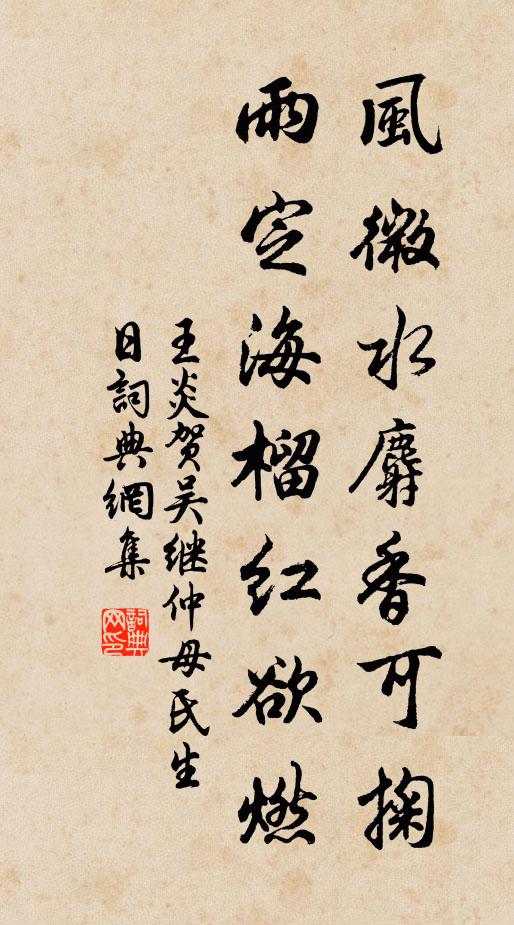 風微水麝香可掬
雨定海榴红欲燃
王炎贺吴继仲母氏生
日詞典網集
詞典网印